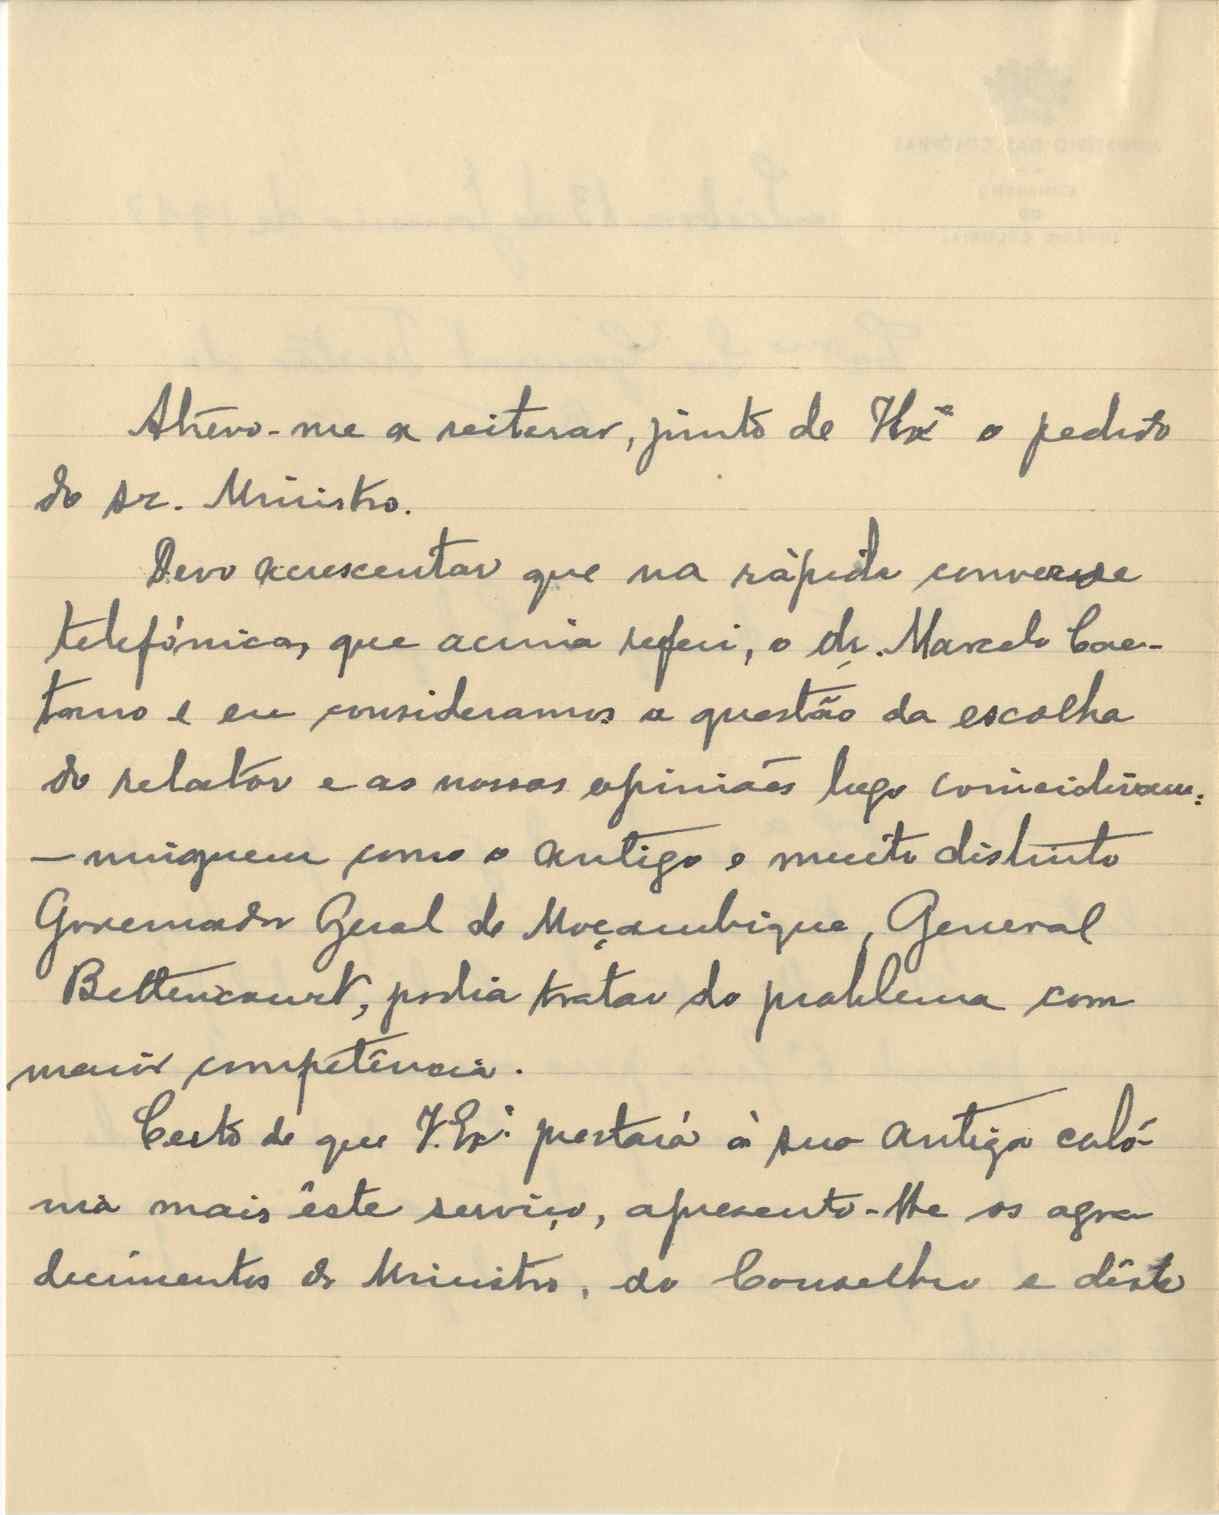 Atrevo-me a reiterar, junto de V.Ex.ª o pedido
do sr. Ministro.
Devo acrescentar que na rápida conversa
telefónica, que acima referi, o dr. Marcelo Cae-
tano e eu consideramos a questão da escolha
do relator e as nossas opiniões logo coincidiram:
— ninguem como o antigo e muito distinto
Governador Geral de Moçambique, General
Bettencourt, podia tratar do problema com
maior competência.
Certo de que V.Ex.ª prestará à sua antiga coló-
nia mais êste serviço, apresento-lhe os agra
decimentos do Ministro, do Conselho e dêste